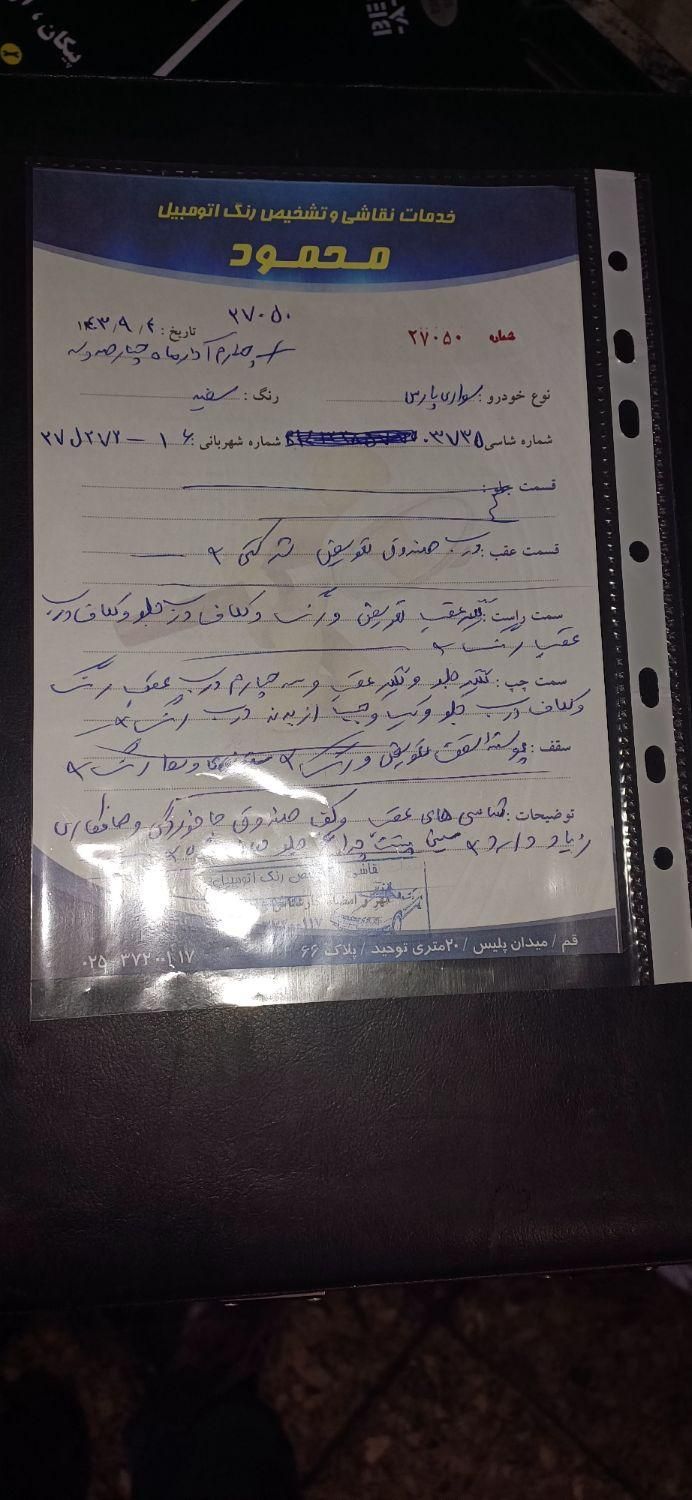 پیکان ،
خدمات نقاشی و تشخیص رنگ اتومبیل
محمود
۲۷۰۵۰
شماره ۲۷۰۵۰ تاریخ : ۱۴۰۳/۹/۴
چهارم آذرماه چهارصدوسه
نوع خودرو : سواری پارس رنگ : سفید
شماره شاسی ۰۳۷۳۵ شماره شهربانی : ۱۶ - ۲۷۲ل۳۷
قسمت جلو :
قسمت عقب : درب صندوق تعویض شرکتی
سمت راست : گلگیر عقب تعویض و رنگ و کلاف درب جلو و کلاف درب
عقب رنگ
سمت چپ : گلگیر جلو و گلگیر عقب و سه چهارم درب عقب رنگ
و کلاف درب جلو و یک وجب از بدنه درب رنگ
سقف : پوسته سقف تعویض و رنگ ستونها رنگ
توضیحات : شاسی های عقب و کف صندوق جاخوردگی و صافکاری
زیاد دارد سینی پشت چراغ جلو
قم / میدان پلیس / ۲۰متری توحید / پلاک ۶۶
۰۲۵ - ۳۷۲۰۰۱۱۷